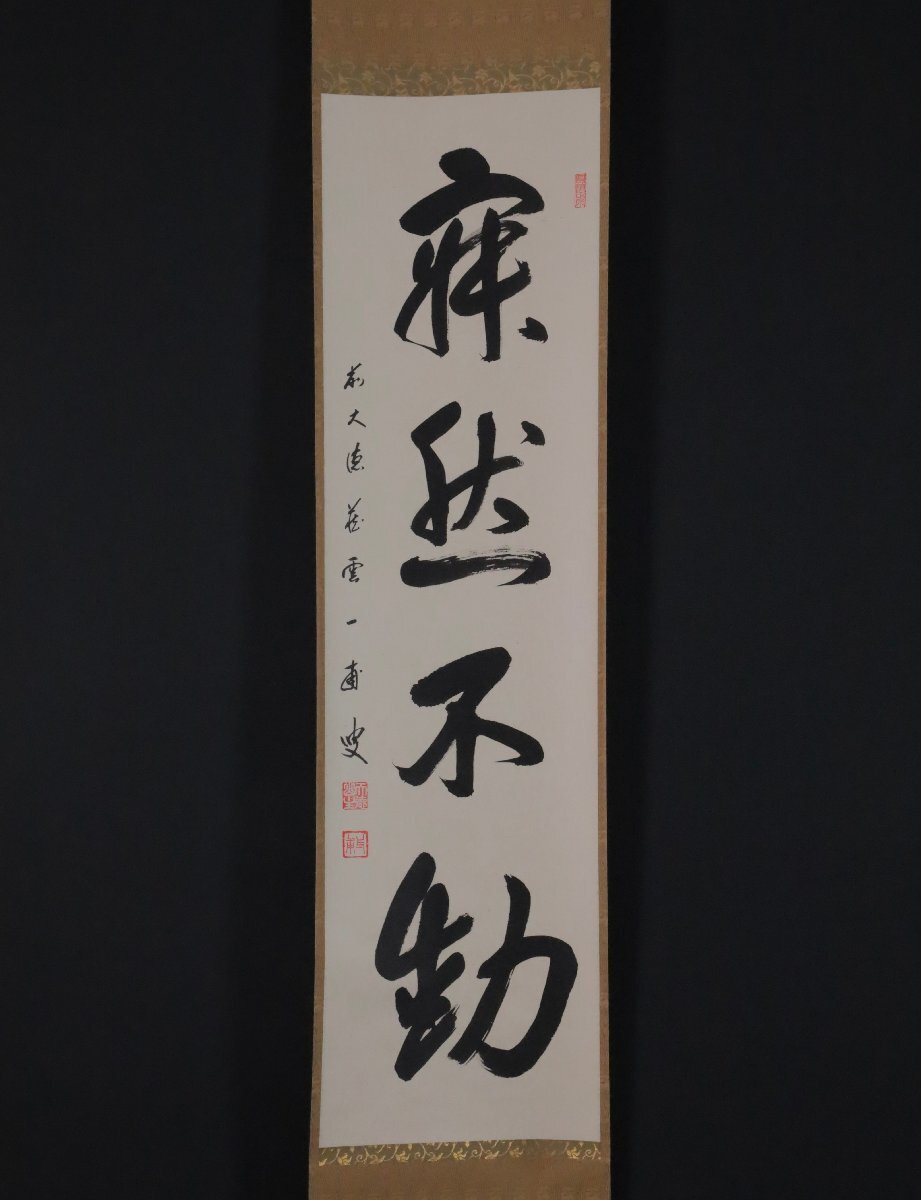 寂然不動
前大徳藏雲一甫叟